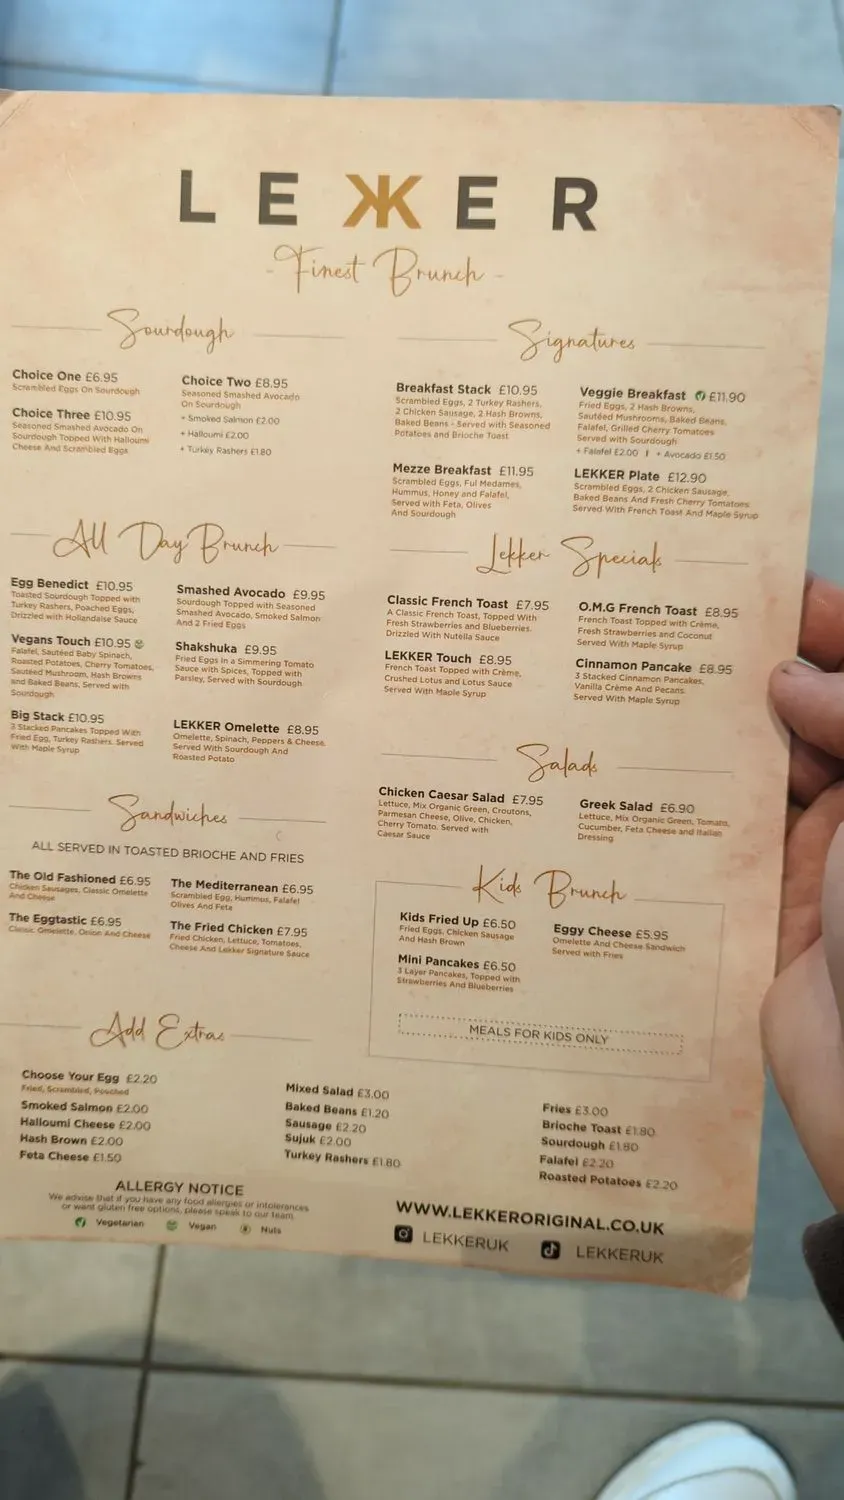 LEKKER
- Finest Brunch -
Sourdough
Choice One £6.95
Scrambled Eggs On Sourdough
Choice Three £10.95
Seasoned Smashed Avocado On
Sourdough Topped With Halloumi
Cheese And Scrambled Eggs
Choice Two £8.95
Seasoned Smashed Avocado
On Sourdough
+ Smoked Salmon £2.00
+ Halloumi £2.00
+ Turkey Rashers £1.80
Signatures
Breakfast Stack £10.95
Scrambled Eggs, 2 Turkey Rashers,
2 Chicken Sausage, 2 Hash Browns,
Baked Beans - Served with Seasoned
Potatoes and Brioche Toast
Mezze Breakfast £11.95
Scrambled Eggs, Ful Medames,
Hummus, Honey and Falafel,
Served with Feta, Olives
And Sourdough
Veggie Breakfast £11.90
Fried Eggs, 2 Hash Browns,
Sautéed Mushrooms, Baked Beans,
Falafel, Grilled Cherry Tomatoes
Served with Sourdough
+ Falafel £2.00 | + Avocado £1.50
LEKKER Plate £12.90
Scrambled Eggs, 2 Chicken Sausage,
Baked Beans And Fresh Cherry Tomatoes
Served With French Toast And Maple Syrup
All Day Brunch
Egg Benedict £10.95
Toasted Sourdough Topped with
Turkey Rashers, Poached Eggs,
Drizzled with Hollandaise Sauce
Vegans Touch £10.95
Falafel, Sautéed Baby Spinach,
Roasted Potatoes, Cherry Tomatoes,
Sautéed Mushroom, Hash Browns
and Baked Beans, Served with
Sourdough
Big Stack £10.95
3 Stacked Pancakes Topped With
Fried Egg, Turkey Rashers. Served
With Maple Syrup
Smashed Avocado £9.95
Sourdough Topped with Seasoned
Smashed Avocado, Smoked Salmon
And 2 Fried Eggs
Shakshuka £9.95
Fried Eggs in a Simmering Tomato
Sauce with Spices, Topped with
Parsley, Served with Sourdough
LEKKER Omelette £8.95
Omelette, Spinach, Peppers & Cheese,
Served With Sourdough And
Roasted Potato
Lekker Specials
Classic French Toast £7.95
A Classic French Toast, Topped With
Fresh Strawberries and Blueberries.
Drizzled With Nutella Sauce
LEKKER Touch £8.95
French Toast Topped with Crème,
Crushed Lotus and Lotus Sauce
Served With Maple Syrup
O.M.G French Toast £8.95
French Toast Topped with Crème,
Fresh Strawberries and Coconut
Served With Maple Syrup
Cinnamon Pancake £8.95
3 Stacked Cinnamon Pancakes,
Vanilla Crème And Pecans.
Served With Maple Syrup
Salads
Chicken Caesar Salad £7.95
Lettuce, Mix Organic Green, Croutons,
Parmesan Cheese, Olive, Chicken,
Cherry Tomato. Served with
Caesar Sauce
Greek Salad £6.90
Lettuce, Mix Organic Green, Tomato,
Cucumber, Feta Cheese and Italian
Dressing
Sandwiches
ALL SERVED IN TOASTED BRIOCHE AND FRIES
The Old Fashioned £6.95
Chicken Sausages, Classic Omelette
And Cheese
The Eggtastic £6.95
Classic Omelette, Onion And Cheese
The Mediterranean £6.95
Scrambled Egg, Hummus, Falafel
Olives And Feta
The Fried Chicken £7.95
Fried Chicken, Lettuce, Tomatoes,
Cheese And Lekker Signature Sauce
Kids Brunch
Kids Fried Up £6.50
Fried Eggs, Chicken Sausage
And Hash Brown
Mini Pancakes £6.50
3 Layer Pancakes, Topped with
Strawberries And Blueberries
Eggy Cheese £5.95
Omelette And Cheese Sandwich
Served with Fries
MEALS FOR KIDS ONLY
Add Extras
Choose Your Egg £2.20
Fried, Scrambled, Pouched
Smoked Salmon £2.00
Halloumi Cheese £2.00
Hash Brown £2.00
Feta Cheese £1.50
Mixed Salad £3.00
Baked Beans £1.20
Sausage £2.20
Sujuk £2.00
Turkey Rashers £1.80
Fries £3.00
Brioche Toast £1.80
Sourdough £1.80
Falafel £2.20
Roasted Potatoes £2.20
ALLERGY NOTICE
We advise that if you have any food allergies or intolerances
or want gluten free options, please speak to our team
Vegetarian Vegan Nuts
WWW.LEKKERORIGINAL.CO.UK
LEKKERUK LEKKERUK